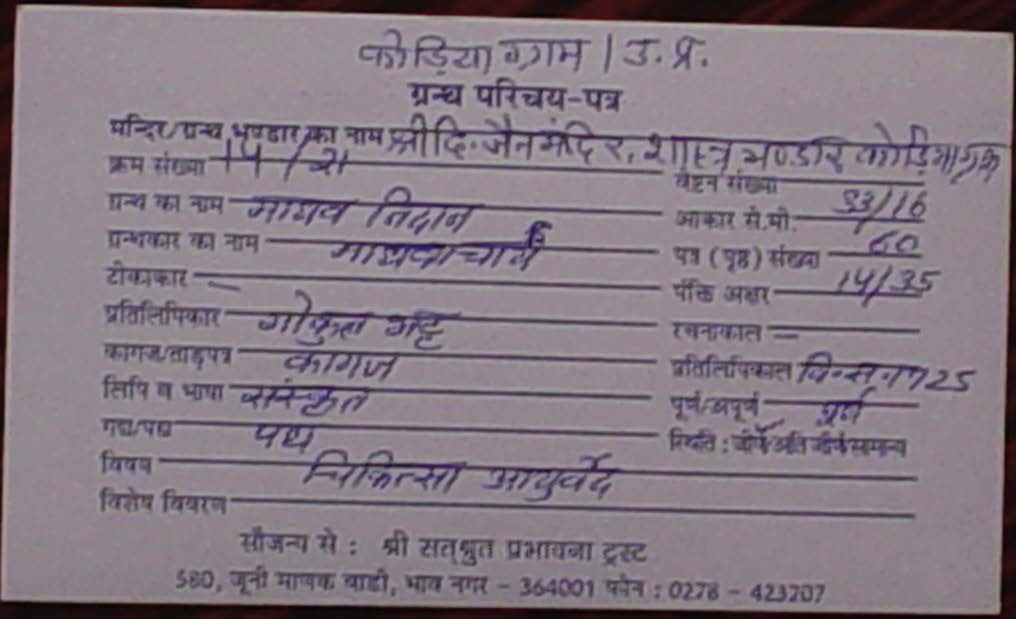 कोड़िया ग्राम / उ. प्र.
ग्रन्थ परिचय-पत्र
मन्दिर/ग्रन्थ भण्डार का नाम श्री दि. जैन मंदिर, शास्त्र भण्डार
क्रम संख्या 14 / वेष्टन संख्या
ग्रन्थ का नाम माधव निदान आकार से.मी. 33/16
ग्रन्थकार का नाम माधवाचार्य पत्र (पृष्ठ) संख्या 60
टीकाकार — पंक्ति अक्षर 14/35
प्रतिलिपिकार गोकुल भट्ट रचनाकाल —
कागज/ताड़पत्र कागज प्रतिलिपिकाल वि. सं. 1725
लिपि व भाषा संस्कृत पूर्ण/अपूर्ण पूर्ण
गद्य/पद्य पद्य स्थिति : जीर्ण/अति जीर्ण/सामान्य
विषय चिकित्सा आयुर्वेद
विशेष विवरण
सौजन्य से : श्री सत्श्रुत प्रभावना ट्रस्ट
580, जूनी माणक वाडी, भाव नगर - 364001 फोन : 0278 - 423207